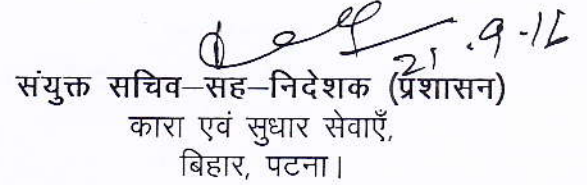 21.9-16
संयुक्त सचिव–सह–निदेशक (प्रशासन)
कारा एवं सुधार सेवाएँ,
बिहार, पटना।